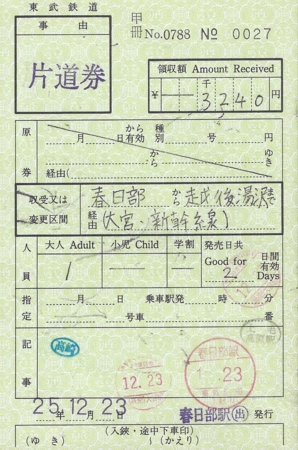 東武鉄道
甲
冊 No.0788 No 0027
事由
片道券
領収額 Amount Received
千
¥ 3240 円
原券
月 日から有効 種別 号 円
から ゆき
経由( )
収受又は変更区間
春日部 から 越后湯沢 ゆき
経由(大宮、新幹線)
人員
大人 Adult 小児 Child 学割 発売日共
1 Good for 2 日間有効 Days
指定
月 日 乗車駅発 時 分
号車 番
記事
高崎
12.23
春日部駅
1.-.23
25年12月23日 春日部駅(出)発行
(入鋏・途中下車印)
(ゆき) ~ (かえり)